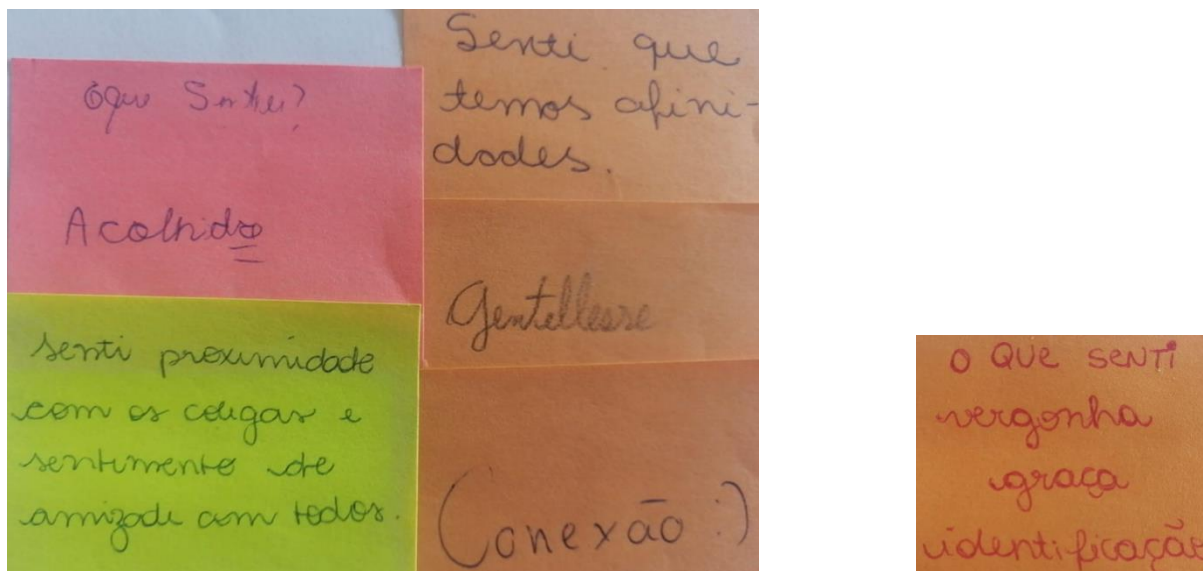 O que Sentei?
Acolhido
senti proximidade
com os colegas e
sentimento de
amizade com todos.
Senti que
temos afini-
dades.
Gentellesse
Conexão :)
O QUE SENTI
vergonha
graça
identificação